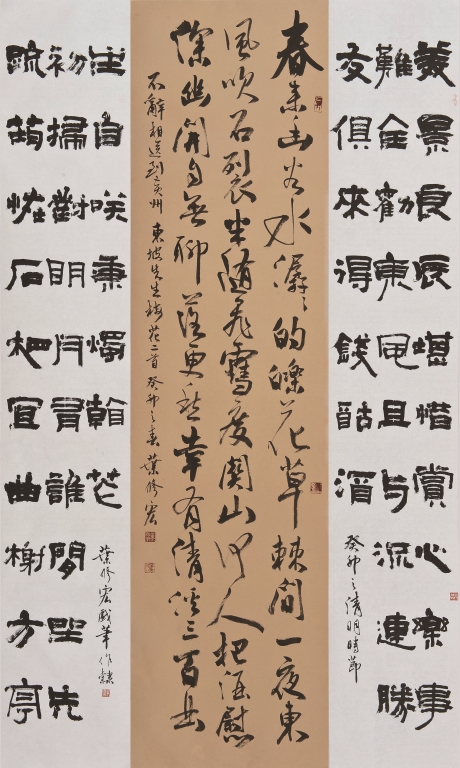 美景良辰堪惜賞心樂事
難全勸東風且與流連勝
友俱來得錢酤酒
癸卯之清明時節
春来幽谷水潺〻的皪花草棘間一夜東
風吹石裂半随飛雪度関山何人把酒慰
深幽開自無聊落更愁幸有清溪三百曲
不辭相送到黄州 東坡先生梅花二首癸卯之春 葉修宏
疏筠怪石宜曲榭方亭
初掃對明月有誰閒坐先
生自咲秉燭看花
葉修宏戲筆作隸